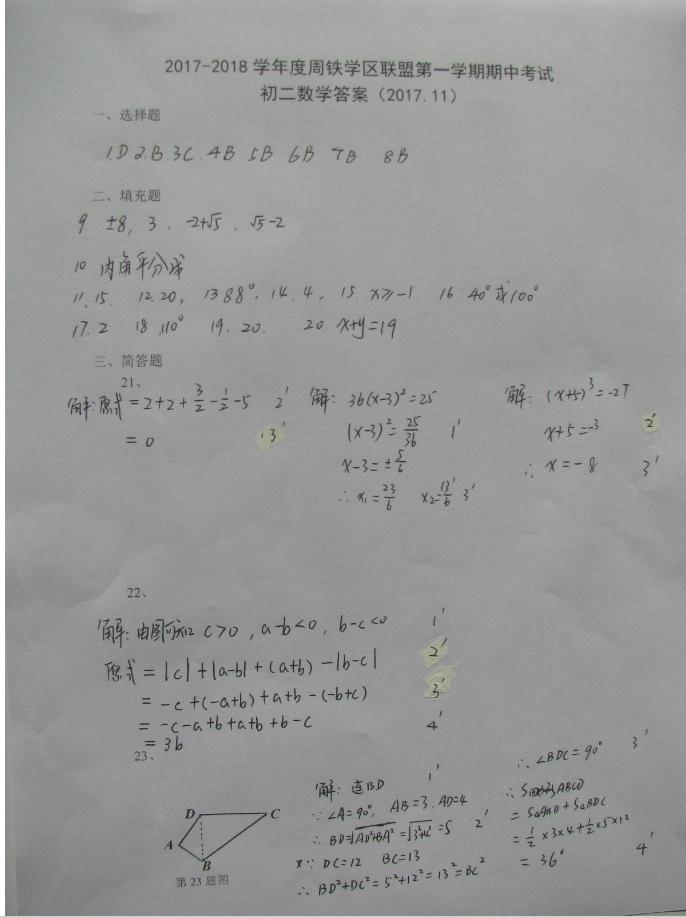 2017-2018 学年度周铁学区联盟第一学期期中考试
初二数学答案（2017.11）
一、选择题
1.D 2.B 3C 4B 5B 6B 7B 8B
二、填充题
9. ±8, 3 , -2+√5 , √5-2
10 内角平分线
11、15. 12.20, 13 88°, 14. 4, 15. x≥-1 16 40°或100°
17. 2 18 110° 19. 20. 20. x+y=19
三、简答题
21、
解:原式=2+2+3/2-1/2-5 2'
=0 3'
解: 36(x-3)²=25
(x-3)²=25/36 1'
x-3=±5/6
∴ x₁=23/6 x₂=13/6 3'
解: (x+5)³=-27
x+5=-3 2'
∴ x=-8 3'
22、
解:由图可知 c>0, a-b<0, b-c<0 1'
原式=|c|+|a-b|+(a+b)-|b-c| 2'
=-c+(-a+b)+a+b-(-b+c) 3'
=-c-a+b+a+b+b-c 4'
=3b
23、
D C
A
B
第 23 题图
解: 连BD 1'
∵∠A=90°, AB=3, AD=4
∴ BD=√AD²+BA²=√3²+4²=5 2'
又∵ DC=12 BC=13
∴ BD²+DC²=5²+12²=13²=BC²
∴ ∠BDC=90° 3'
∴ S ABCD
=S△ABD+S△BDC
=1/2×3×4+1/2×5×12
=36 4'